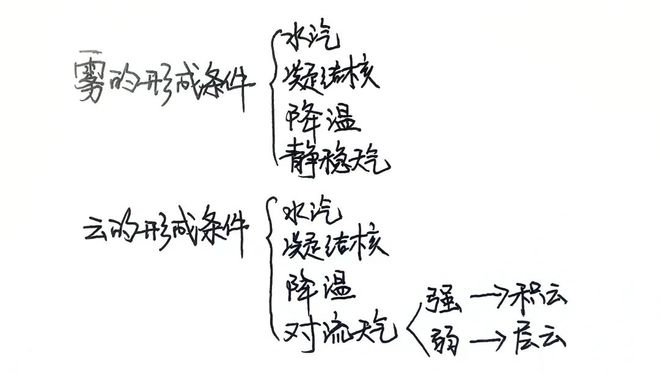 水汽
雾的形成条件 凝结核
降温
静稳天气
水汽
云的形成条件 凝结核
降温
对流天气 强→积云
弱→层云